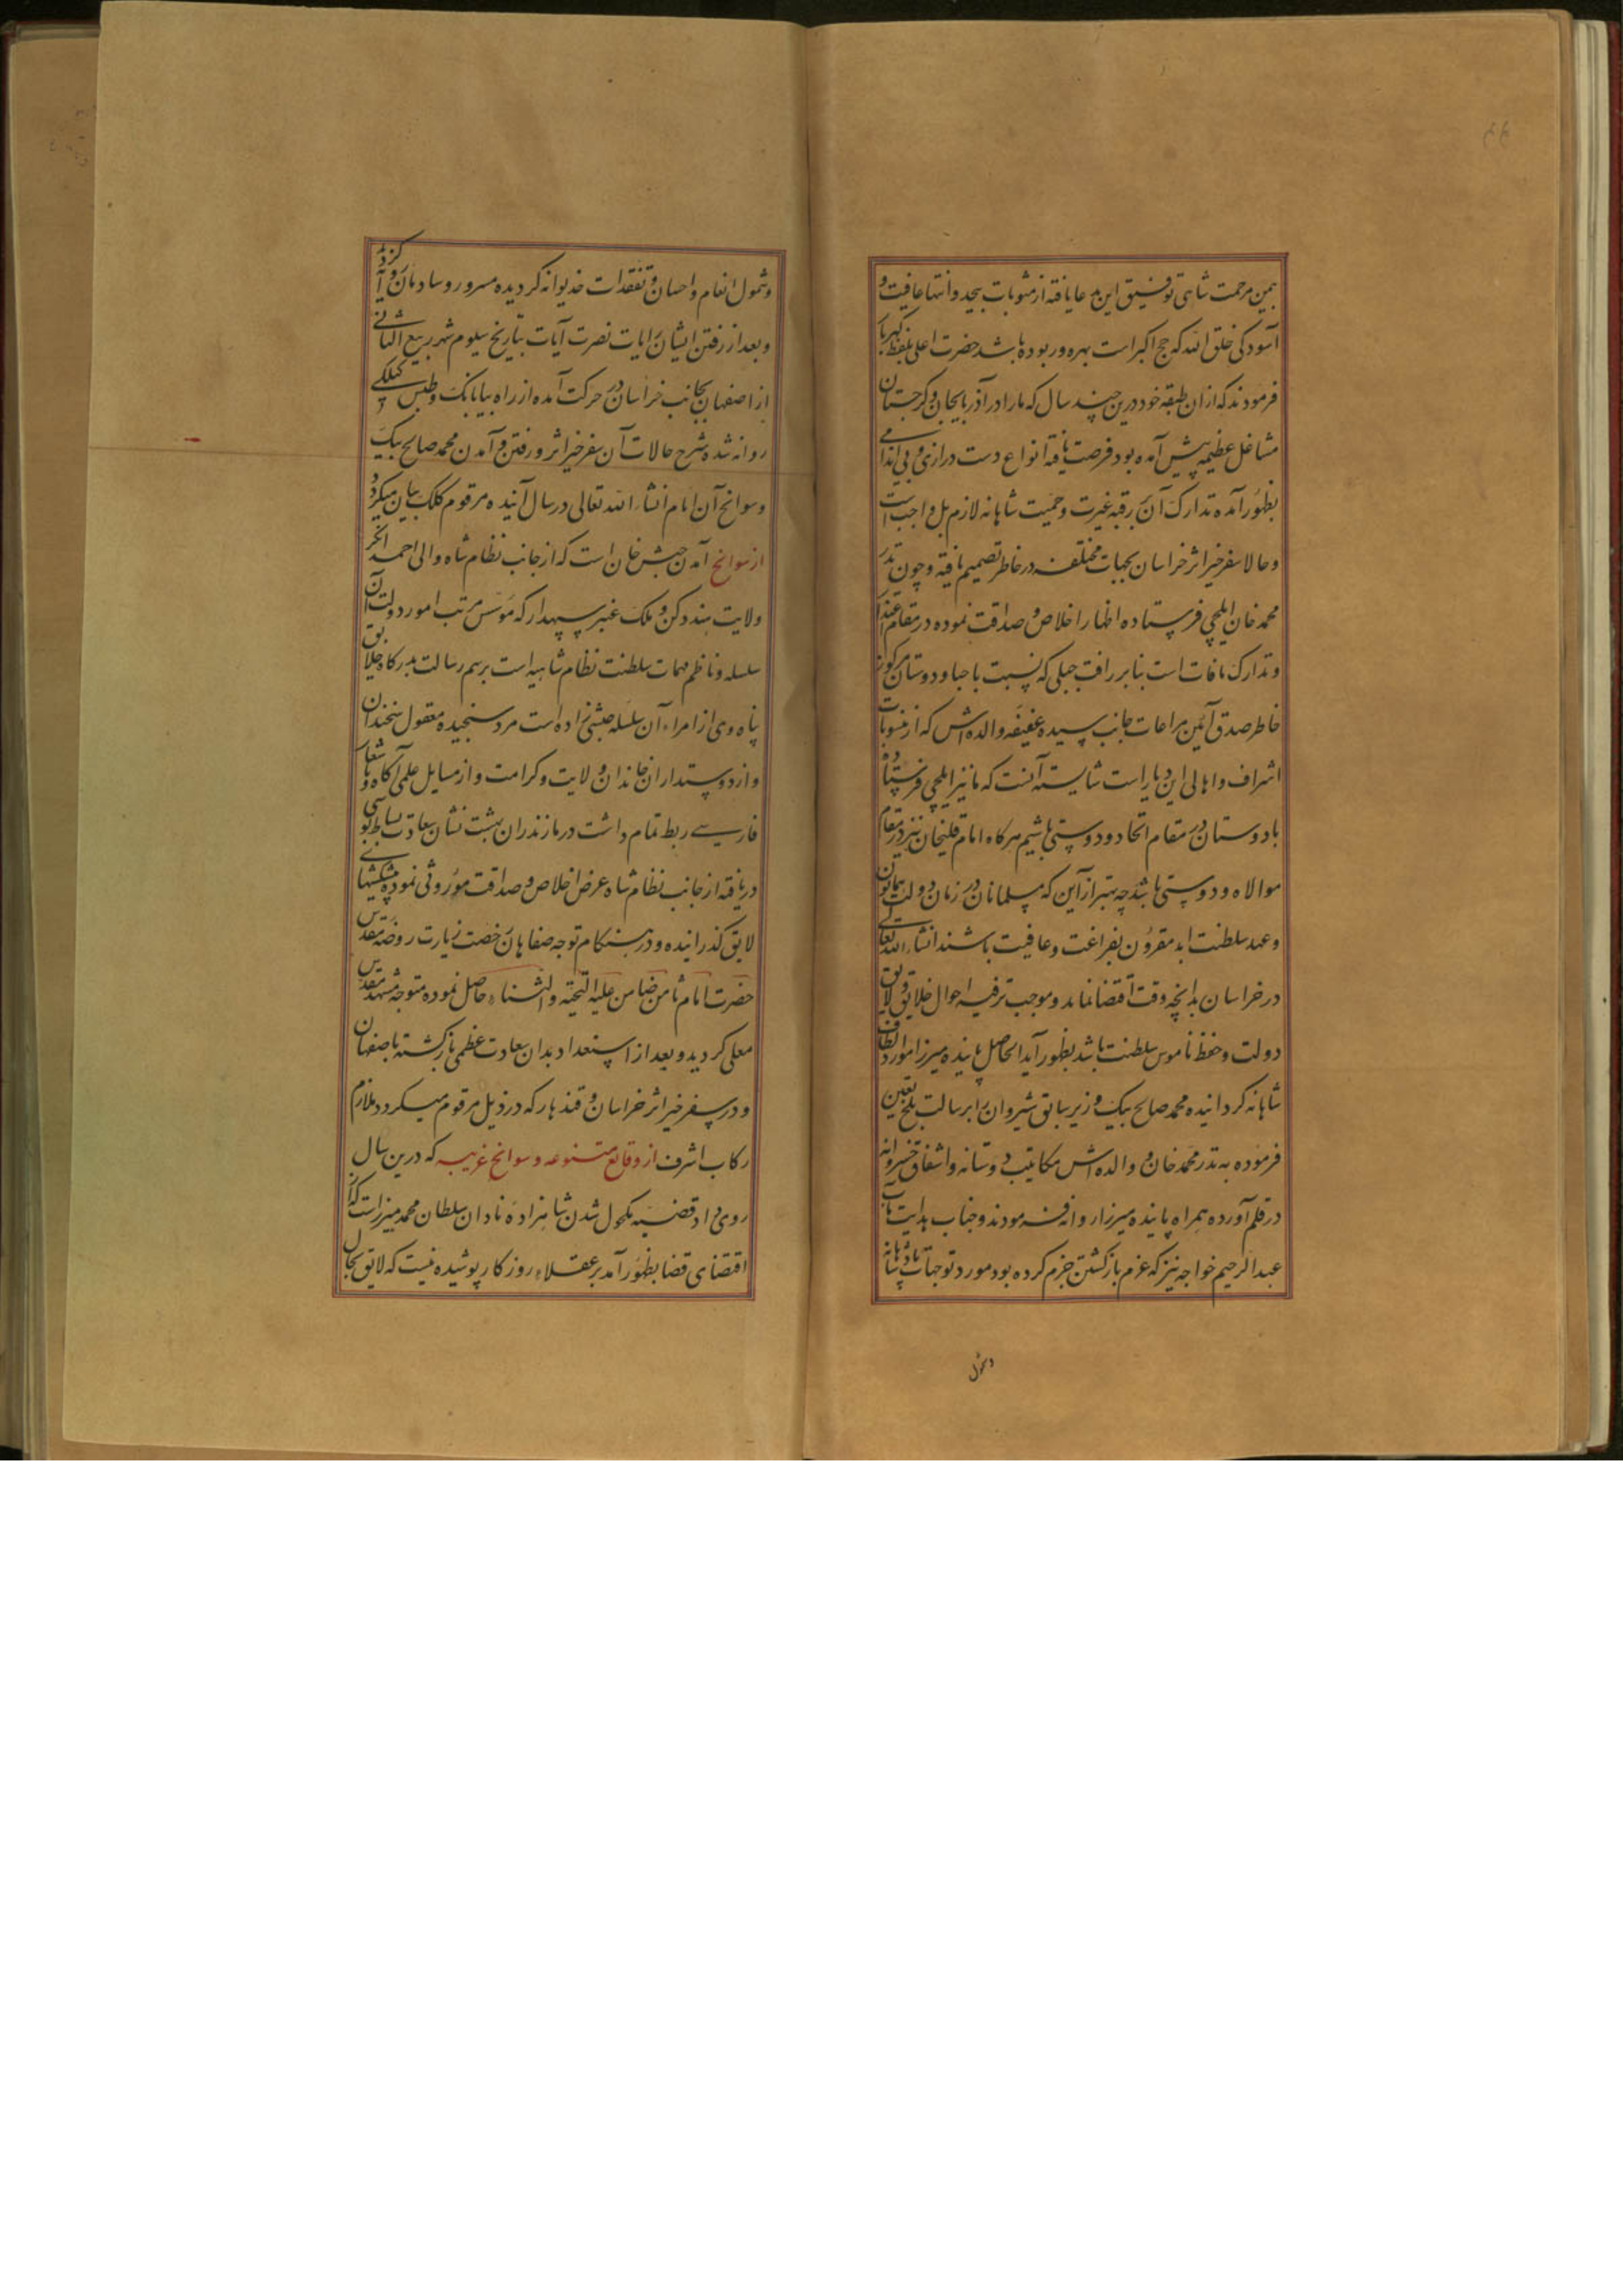 بیمن مرحمت شاهی توفیق این مدعا یافته از مثوبات بیحد و انتها عافیت و
آسودگی خلق الله که حج اکبر است بهره ور بوده باشد حضرت اعلی بلفظ گهربار
فرمودند که از ان طبقه خود درین چند سال که ما را در آذربایجان و کرجستان
مشاغل عظیمه پیش آمده بود فرصت یافته انواع دست درازی و بی اندامی
بظهور آمده تدارک آن بر رقبه غیرت و حمیت شاهانه لازم بل واجب است
و حالا سفر خیر اثر خراسان بجهات مختلفه در خاطر تصمیم یافته و چون ندر
محمد خان ایلچی فرستاده اظهار اخلاص و صداقت نموده در مقام اعتذار
و تدارک مافات است بنابر رافت جبلی که نسبت باحبا و دوستان مرکوز
خاطر صدق آئین مراعات جانب سیده عفیفه والده اش که از منسوبات
اشراف و اهالی این دیار است شایسته آنست که ما نیز ایلچی فرستاده
با دوستان در مقام اتحاد و دوستی باشیم هرکاه امام قلیخان نیز در مقام
موالاه و دوستی باشد چه بهتر از آین که مسلمانان در زمان دولت همایون
و عهد سلطنت ابد مقرون بفراغت و عافیت باشند انشاء الله تعالی
در خراسان بدانچه وقت اقتضا نماید و موجب ترفیه احوال خلایق و لایق
دولت و حفظ ناموس سلطنت باشد بظهور آید الحاصل پاینده میرزا مورد الطاف
شاهانه کردانیده محمد صالح بیک وزیر سابق شیروان را برسالت بلخ تعین
فرموده به ندر محمد خان و والده اش مکاتیب دوستانه و اشفاق خسروانه
در قلم آورده همراه پاینده میرزا روانه فرمودند و جناب هدایت مآب
عبدالرحیم خواجه نیز که عزم بازکشتن جزم کرده بود مورد توجهات پادشاهانه
و شمول
و شمول انعام و احسان و تفقدات خدیوانه کردیده مسرور و شادمان روانه کردید
و بعد از رفتن ایشان رایات نصرت آیات بتاریخ سلوم شهر ربیع الثانی
از اصفهان بجانب خراسان در حرکت آمده از راه بیابانک و طبس گیلکی
روانه شد و شرح حالات آن سفر خیر اثر و رفتن و آمدن محمد صالح بیک
و سوانح آن ایام انشاء الله تعالی در سال آینده مرقوم کلک بیان میکردد
از سوانح آمدن حبش خان است که از جانب نظام شاه والی احمد نکر
ولایت هند دکن و ملک عنبر سپهدار که مؤسس مرتب امور دولت آن
سلسله و ناظم مهمات سلطنت نظام شاهیه است برسم رسالت بدرکاه خلایق
پناه وی از امراء آن سلسله حبشی نژاده است مرد سنجیده معقول سخندان
و از دوستداران خاندان ولایت و کرامت و از مسایل علمی آکاه و باشعار
فارسی ربط تمام داشت در مازندران بهشت نشان سعادت بساط بوسی
دریافته از جانب نظام شاه عرض اخلاص و صداقت موروثی نموده پیشکشهای
لایق کذرانیده و در هنکام توجه صفاهان رخصت زیارت روضه مقدس
حضرت امام ثامن ضامن علیه التحیته و الثناء حاصل نموده متوجه مشهد مقدس
معلی کردید و بعد از استعداد بدان سعادت عظمی بازکشته باصفهان
و در سفر خیر اثر خراسان و قندهار که در ذیل مرقوم میکردد ملازم
رکاب اشرف از وقایع متنوعه و سوانح غریبه که درین سال
روی داد قضیه مکحول شدن شاهزاده نادان سلطان محمد میرزاست که از
اقتضای قضا بظهور آمد بر عقلاء روزکار پوشیده نیست که لایق بحال